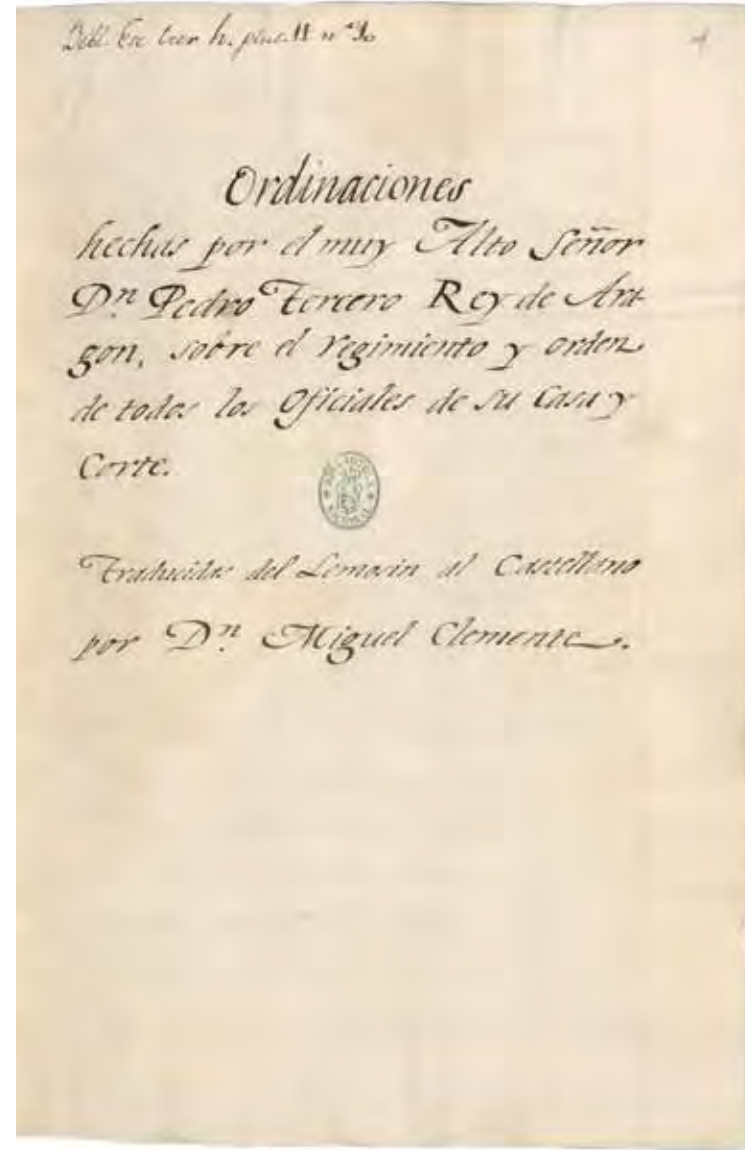 Bibl. Esc. h. plut. II nº
Ordinaciones
hechas por el muy Alto Señor
Dn Pedro Tercero Rey de Ara-
gon, sobre el regimiento y orden
de todos los Oficiales de su Casa y
Corte.
BIBLIOTECA NACIONAL
Traducidas del Lemosin al Castellano
por Dn Miguel Clemente.